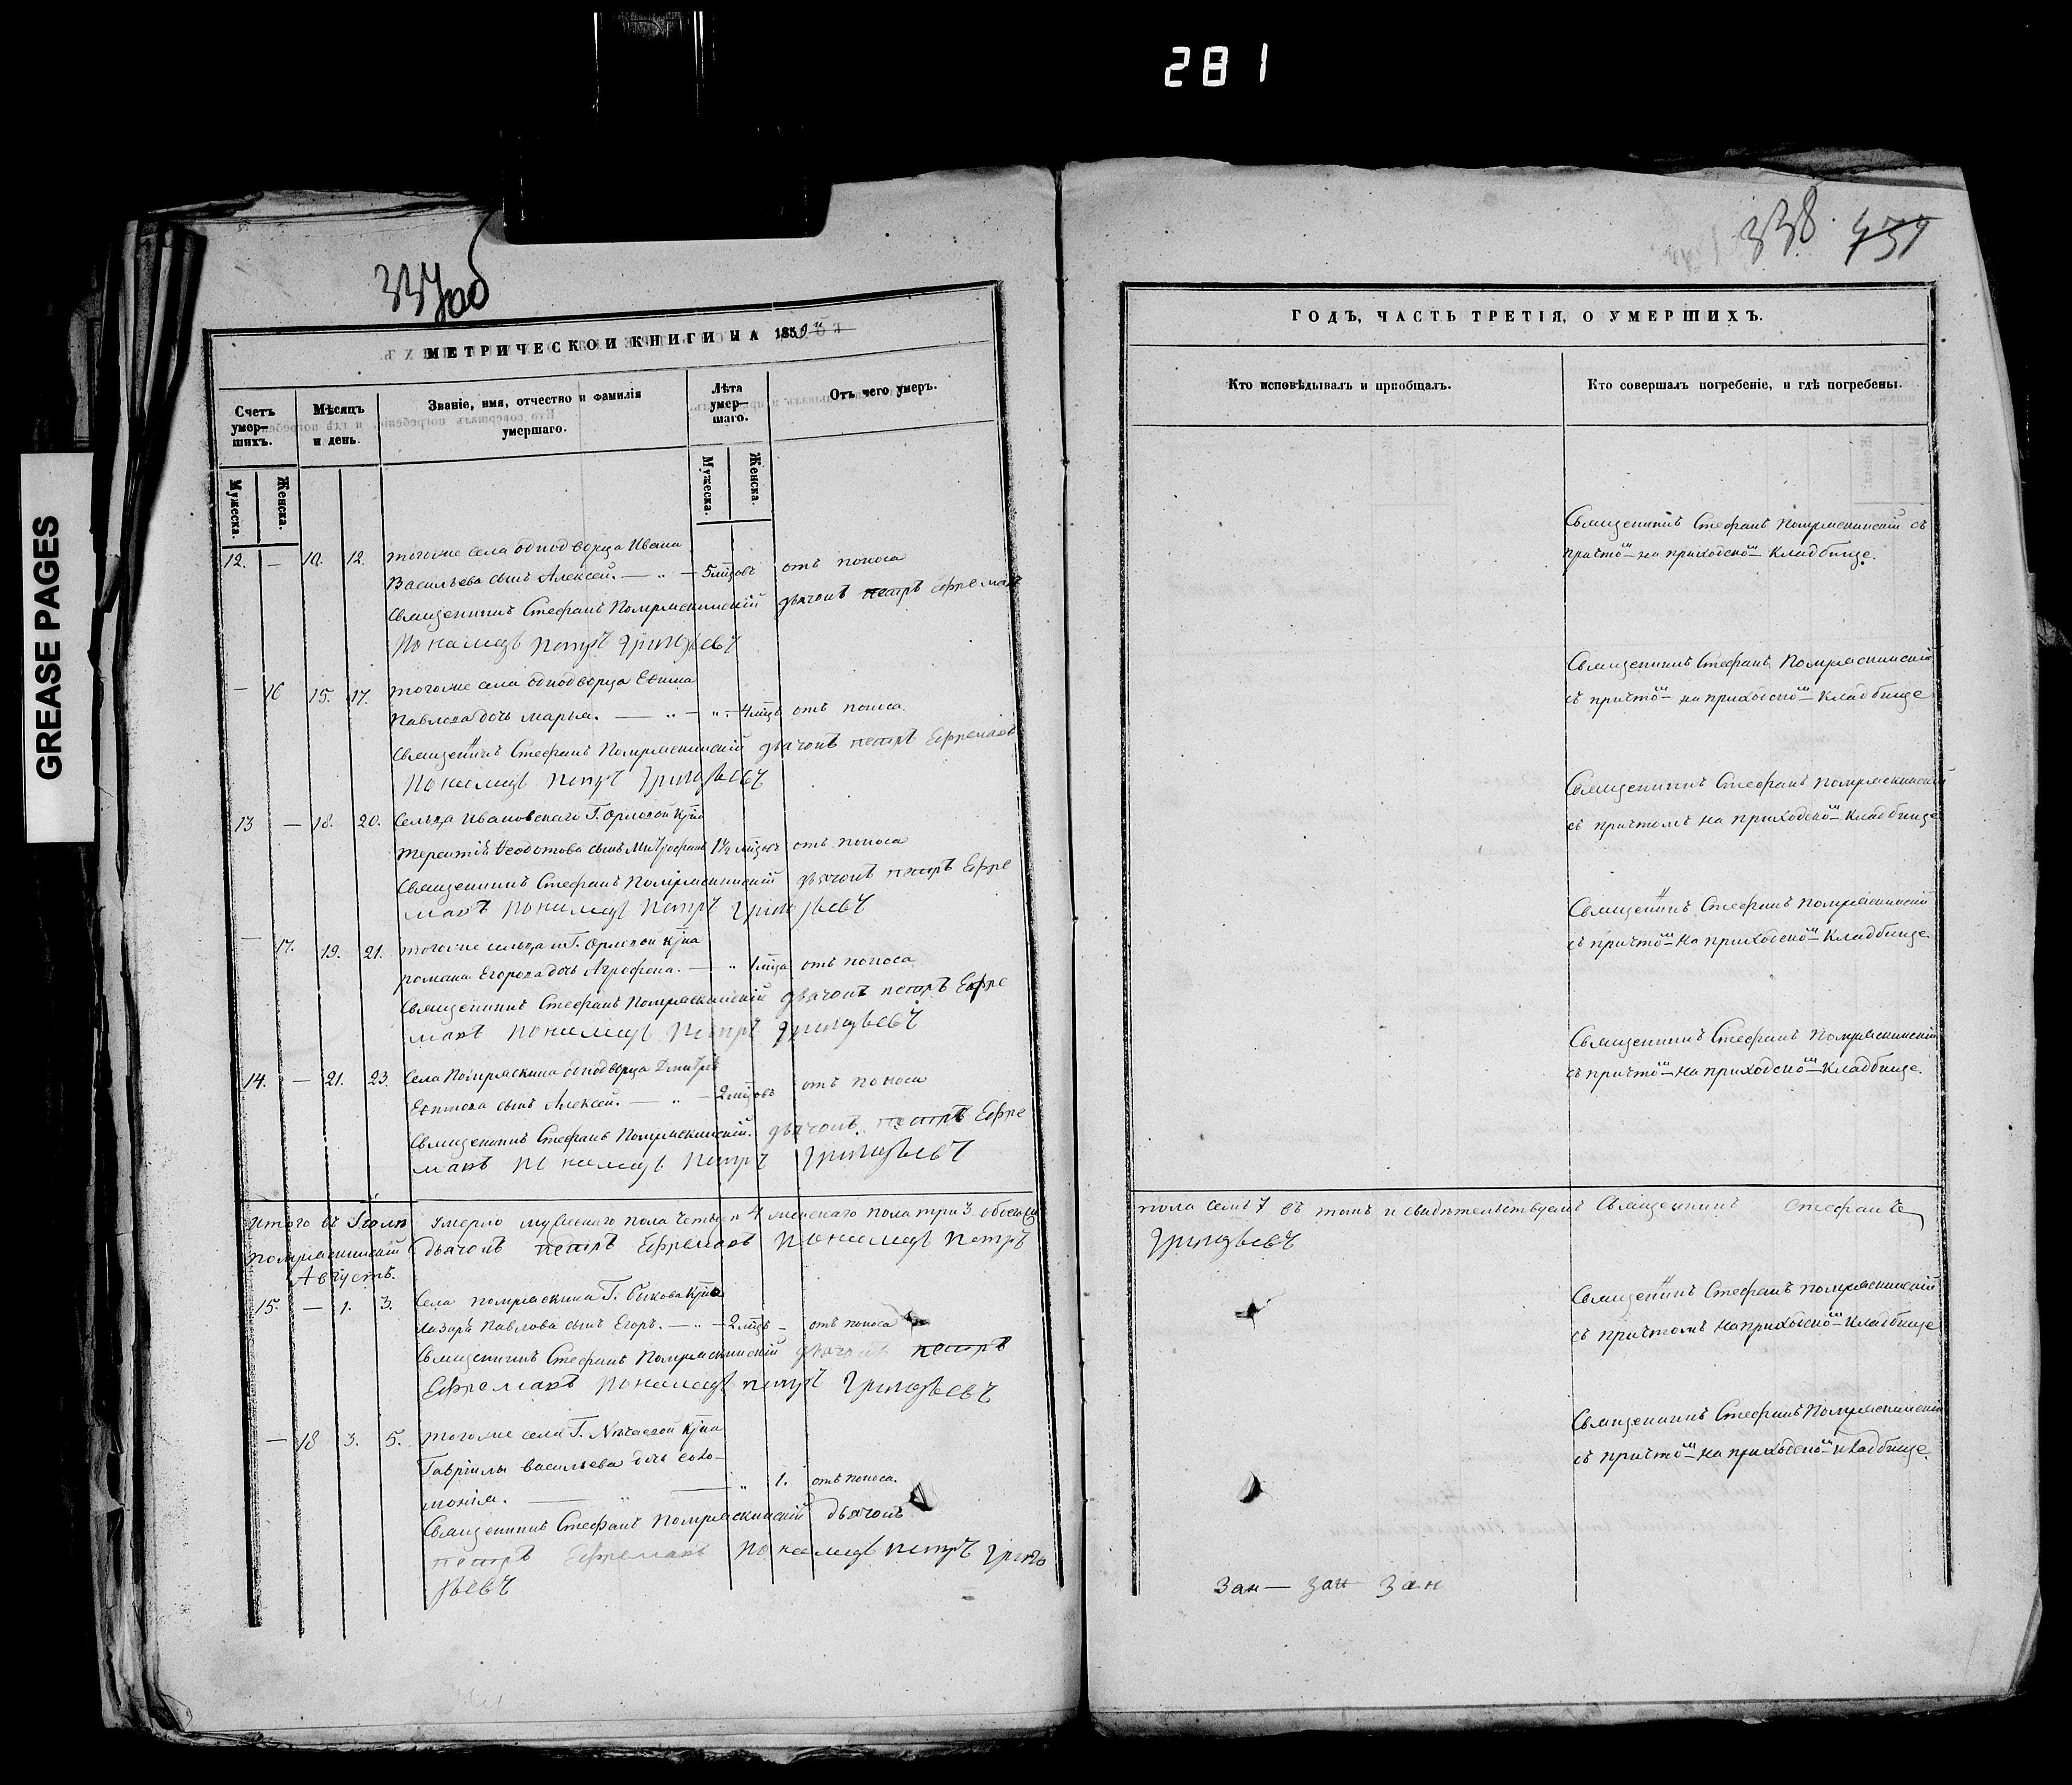 281
GREASE PAGES
337об
МЕТРИЧЕСКОЙ КНИГИ НА 1850й
Счетъ умер–шихъ.
Мѣсяцъ и день.
Званіе, имя, отчество и фамилія умершаго.
Лѣта умер–шаго.
Отъ чего умеръ.
Мужеска.
Женска.
Мужеска.
Женска.
12. — 10. 12. тогоже села однодворца Ивана
Васильева сынъ Алексей. — „ — 5 мцовъ отъ поноса
Священникъ Стефанъ Помряскинскій дьячокъ петръ Ефремовъ
Пономарь Петръ Григорьевъ
— 16 15. 17. тогоже села однодворца Евѳима
Павлова дочь Марья. — „ — „. 4 мцъ отъ поноса.
Священникъ Стефанъ Помряскинскій дьячокъ петръ Ефремовъ
Пономарь Петръ Григорьевъ
13 — 18. 20. Сельца Ивановскаго Г. Орловой кр͠на
терентія Ѳеодотова сынъ Митрофанъ 1½ мцовъ отъ поноса
Священникъ Стефанъ Помряскинскій дьячокъ петръ Ефре
мовъ Пономарь Петръ Григорьевъ
— 17. 19. 21. тогоже сельца и Г. Орловой кр͠на
романа Егорова дочь Агрофена. — „ 1 мца отъ поноса
Священникъ Стефанъ Помряскинскій дьячокъ петръ Ефре
мовъ Пономарь Петръ Григорьевъ
14. — 21. 23. Села Помряскина однодворца Дмитрія
сынъ Алексей. — „ — 2 мцовъ отъ поноса
Священникъ Стефанъ Помряскинскій. дьячокъ петръ Ефре
мовъ Пономарь Петръ Григорьевъ
Итого въ Іюлѣ умерло мужескаго пола четыре 4 женскаго пола три 3. обоего
Помряскинскій дьячокъ петръ Ефремовъ Пономарь Петръ
Августъ.
15. — 1. 3. Села помряскина Г. кр͠на
Лазаря Павлова сынъ Егоръ. — „ — 2 мцъ – отъ поноса
Священникъ Стефанъ Помряскинскій дьячокъ петръ
Ефремовъ Пономарь петръ Григорьевъ
— 18 3. 5. тогоже села Г. кр͠на
Гаврилы Васильева дочь соло–
монія. — „ — „ 1. отъ поноса.
Священникъ Стефанъ Помряскинскій дьячокъ
петръ Ефремовъ Пономарь петръ Григо
рьевъ
338. 431
ГОДЪ, ЧАСТЬ ТРЕТІЯ, О УМЕРШИХЪ.
Кто исповѣдывалъ и пріобщалъ.
Кто совершалъ погребеніе, и гдѣ погребены.
Священникъ Стефанъ Помряскинскій съ
причтомъ на приходскомъ кладбище.
Священникъ Стефанъ Помряскинскій
съ причтомъ на приходскомъ кладбище
Священникъ Стефанъ Помряскинскій
съ причтомъ на приходскомъ кладбище
Священникъ Стефанъ Помряскинскій
съ причтомъ на приходскомъ кладбище.
Священникъ Стефанъ Помряскинскій
съ причтомъ на приходскомъ кладбище.
пола семь 7 въ томъ и свидѣтельствуемъ Священникъ Стефанъ
Григорьевъ
Священникъ Стефанъ помряскинскій
съ причтомъ на приходскомъ кладбище
Священникъ Стефанъ Помряскинскій
съ причтомъ на приходскомъ кладбище.
Зан— Зан Зан